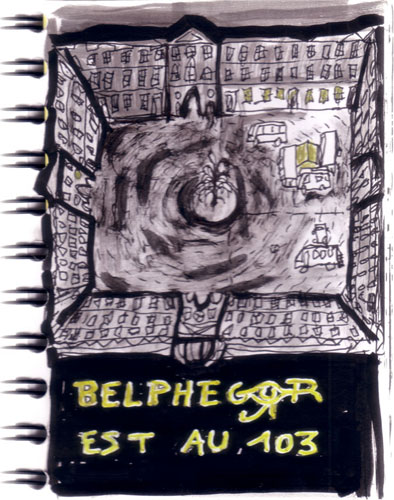 BELPHEGOR
EST AU.103